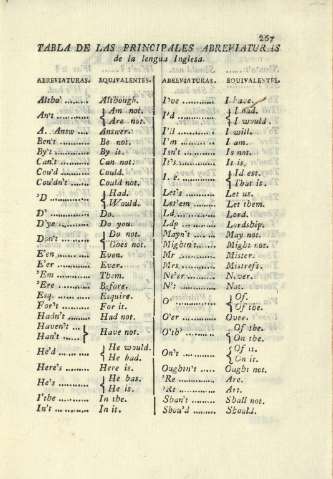 267
TABLA DE LAS PRINCIPALES ABREVIATURAS
de la lengua Inglesa.
ABREVIATURAS. EQUIVALENTES.
Altho' ........ Although.
An't ........ { Am not.
Are not.
A. Answ .... Answer.
Ben't ........ Be not.
By't ........ By it.
Can't ........ Can not.
Cou'd ........ Could.
Couldn't ........ Could not.
'D ........ { Had.
Would.
D' ........ Do.
D'ye ........ Do you.
Don't ........ { Do not.
Does not.
E'en ........ Even.
E'er ........ Ever.
'Em ........ Them.
'Ere ........ Before.
Esq. ........ Esquire.
For't ........ For it.
Hadn't ........ Had not.
Haven't ... } Have not.
Han't ......
He'd ........ { He would.
He had.
Here's ........ Here is.
He's ........ { He has.
He is.
I'the ........ In the.
In't ........ In it.
ABREVIATURAS. EQUIVALENTES.
I've ........ I have.
I'd ........ { I had.
I would.
I'll ........ I will.
I'm ........ I am.
Isn't ........ Is not.
It's ........ It is.
I. e. ........ { Id est.
That is.
Let's ........ Let us.
Let'em ........ Let them.
Ld. ........ Lord.
Ldp ........ Lordship.
Mayn't .... May not.
Mightn't ...... Might not.
Mr ........ Mister.
Mrs. ........ Mistress.
Ne'er ........ Never.
N't ........ Not.
O' ........ { Of.
Of the.
O'er ........ Over.
O'th' ........ { Of the.
On the.
On't ........ { Of it.
On it.
Oughtn't ..... Ought not.
'Re ........ Are.
'Rt ........ Art.
Shan't ........ Shall not.
Shou'd ........ Should.